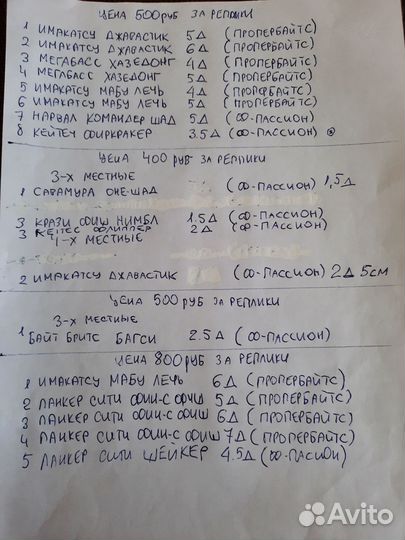 ЦЕНА 500 руб ЗА РЕПЛИКИ
1 ИМАКАТСУ ДЖАВАСТИК 5Д (ПРОПЕРБАЙТС)
2 ИМАКАТСУ ДЖАВАСТИК 6Д (ПРОПЕРБАЙТС)
3 МЕГАБАСС ХАЗЕДОНГ 4Д (ПРОПЕРБАЙТС)
4 МЕГАБАСС ХАЗЕДОНГ 5Д (ПРОПЕРБАЙТС)
5 ИМАКАТСУ МАБУ ЛЕЧЬ 4Д (ПРОПЕРБАЙТС)
6 ИМАКАТСУ МАБУ ЛЕЧЬ 5Д (ПРОПЕРБАЙТС)
7 НАРВАЛ КОМАНДЕР ШАД 5Д (Ф-ПАССИОН)
8 КЕЙТЕЧ ФИРКРАКЕР 3.5Д (Ф-ПАССИОН)
ЦЕНА 400 РУБ ЗА РЕПЛИКИ
3-Х МЕСТНЫЕ
1 САВАМУРА ОНЕ-ШАД (Ф-ПАССИОН) 1,5Д
3 КРАЗИ ФИШ НИМБЛ 1.5Д (Ф-ПАССИОН)
3 ФЛИППЕР 2Д (Ф-ПАССИОН)
4-Х МЕСТНЫЕ
2 ИМАКАТСУ ДЖАВАСТИК (Ф-ПАССИОН) 2Д 5СМ
ЦЕНА 500 РУБ ЗА РЕПЛИКИ
3-Х МЕСТНЫЕ
1 БАЙТ БРИТС БАГСИ 2.5Д (Ф-ПАССИОН)
ЦЕНА 800 РУБ ЗА РЕПЛИКИ
1 ИМАКАТСУ МАБУ ЛЕЧЬ 6Д (ПРОПЕРБАЙТС)
2 ЛАНКЕР СИТИ ФИН-С ФИШ 5Д (ПРОПЕРБАЙТС)
3 ЛАНКЕР СИТИ ФИН-С ФИШ 6Д (ПРОПЕРБАЙТС)
4 ЛАНКЕР СИТИ ФИН-С ФИШ 7Д (ПРОПЕРБАЙТС)
5 ЛАНКЕР СИТИ ШЕЙКЕР 4.5Д (Ф-ПАССИОН)
Avito